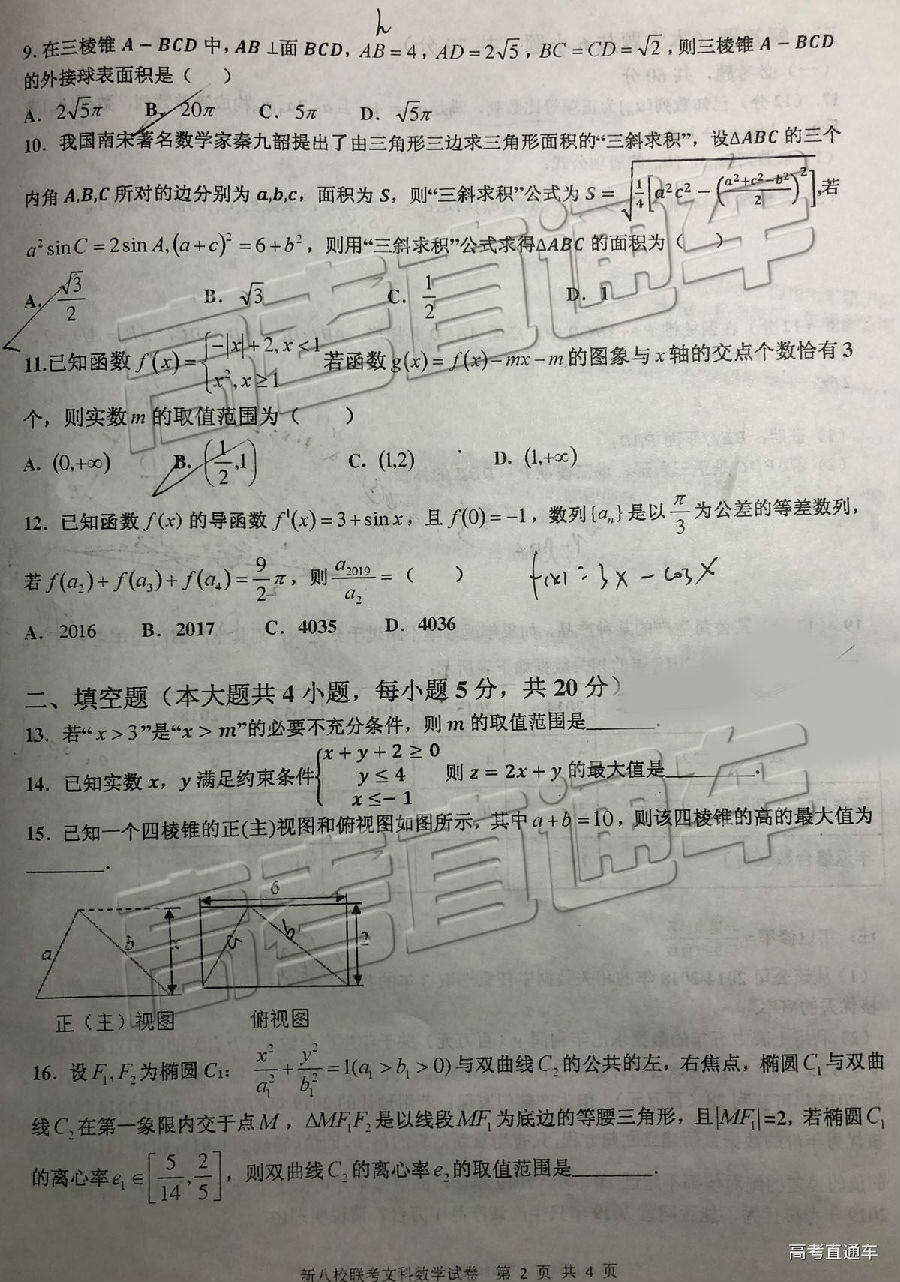 h
9.在三棱锥 A − BCD 中, AB ⊥面 BCD, AB = 4, AD = 2√5, BC = CD = √2, 则三棱锥 A − BCD
的外接球表面积是（ ）
A. 2√5π B. 20π C. 5π D. √5π
10. 我国南宋著名数学家秦九韶提出了由三角形三边求三角形面积的“三斜求积”, 设△ABC 的三个
内角 A,B,C 所对的边分别为 a,b,c, 面积为 S, 则“三斜求积”公式为 S = √(1/4[a²c² − ((a²+c²−b²)/2)²]),若
a² sin C = 2 sin A, (a + c)² = 6 + b², 则用“三斜求积”公式求得△ABC 的面积为（ ）
A. √3/2 B. √3 C. 1/2 D. 1
11.已知函数 f(x) = {−|x| + 2, x < 1 x², x ≥ 1 若函数 g(x) = f(x) − mx − m 的图象与 x 轴的交点个数恰有 3
个, 则实数 m 的取值范围为（ ）
A. (0,+∞) B. (1/2,1) C. (1,2) D. (1,+∞)
12. 已知函数 f(x) 的导函数 f'(x) = 3 + sin x, 且 f(0) = −1, 数列{aₙ}是以 π/3 为公差的等差数列,
若 f(a₂) + f(a₃) + f(a₄) = 9/2 π, 则 a₂₀₁₉/a₂ = （ ）
f(x) = 3x − cosx
A. 2016 B. 2017 C. 4035 D. 4036
二、填空题（本大题共 4 小题, 每小题 5 分, 共 20 分）
13. 若“x > 3”是“x > m”的必要不充分条件, 则 m 的取值范围是______.
14. 已知实数 x, y 满足约束条件{x + y + 2 ≥ 0 y ≤ 4 x ≤ −1 则 z = 2x + y 的最大值是________.
15. 已知一个四棱锥的正(主)视图和俯视图如图所示, 其中 a + b = 10, 则该四棱锥的高的最大值为
_______.
a b
6 a b 2
正（主）视图 俯视图
16. 设 F₁, F₂ 为椭圆 C₁: x²/a₁² + y²/b₁² = 1(a₁ > b₁ > 0) 与双曲线 C₂ 的公共的左, 右焦点, 椭圆 C₁ 与双曲
线 C₂ 在第一象限内交于点 M, ΔMF₁F₂ 是以线段 MF₁ 为底边的等腰三角形, 且|MF₁|=2, 若椭圆 C₁
的离心率 e₁ ∈ [5/14, 2/5], 则双曲线 C₂ 的离心率 e₂ 的取值范围是_______.
新八校联考文科数学试卷 第 2 页 共 4 页
高考直通车
高考直通车
高考直通车